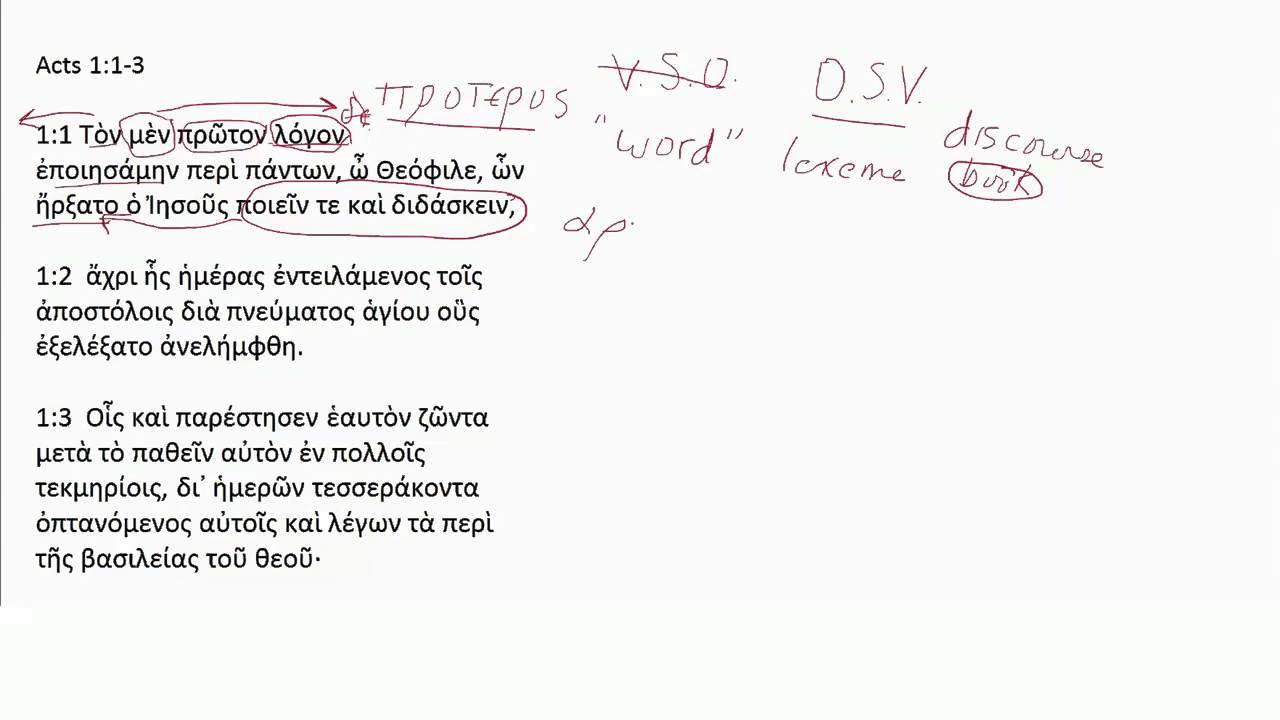 Acts 1:1-3
V.S.O.
O.S.V.
προτερος
1:1 Τὸν μὲν πρῶτον λόγον
"word"
lexeme
discourse
book
ἐποιησάμην περὶ πάντων, ὦ Θεόφιλε, ὧν
ἤρξατο ὁ Ἰησοῦς ποιεῖν τε καὶ διδάσκειν,
αρ
1:2 ἄχρι ἧς ἡμέρας ἐντειλάμενος τοῖς
ἀποστόλοις διὰ πνεύματος ἁγίου οὓς
ἐξελέξατο ἀνελήμφθη.
1:3 Οἷς καὶ παρέστησεν ἑαυτὸν ζῶντα
μετὰ τὸ παθεῖν αὐτὸν ἐν πολλοῖς
τεκμηρίοις, δι᾽ ἡμερῶν τεσσεράκοντα
ὀπτανόμενος αὐτοῖς καὶ λέγων τὰ περὶ
τῆς βασιλείας τοῦ θεοῦ·